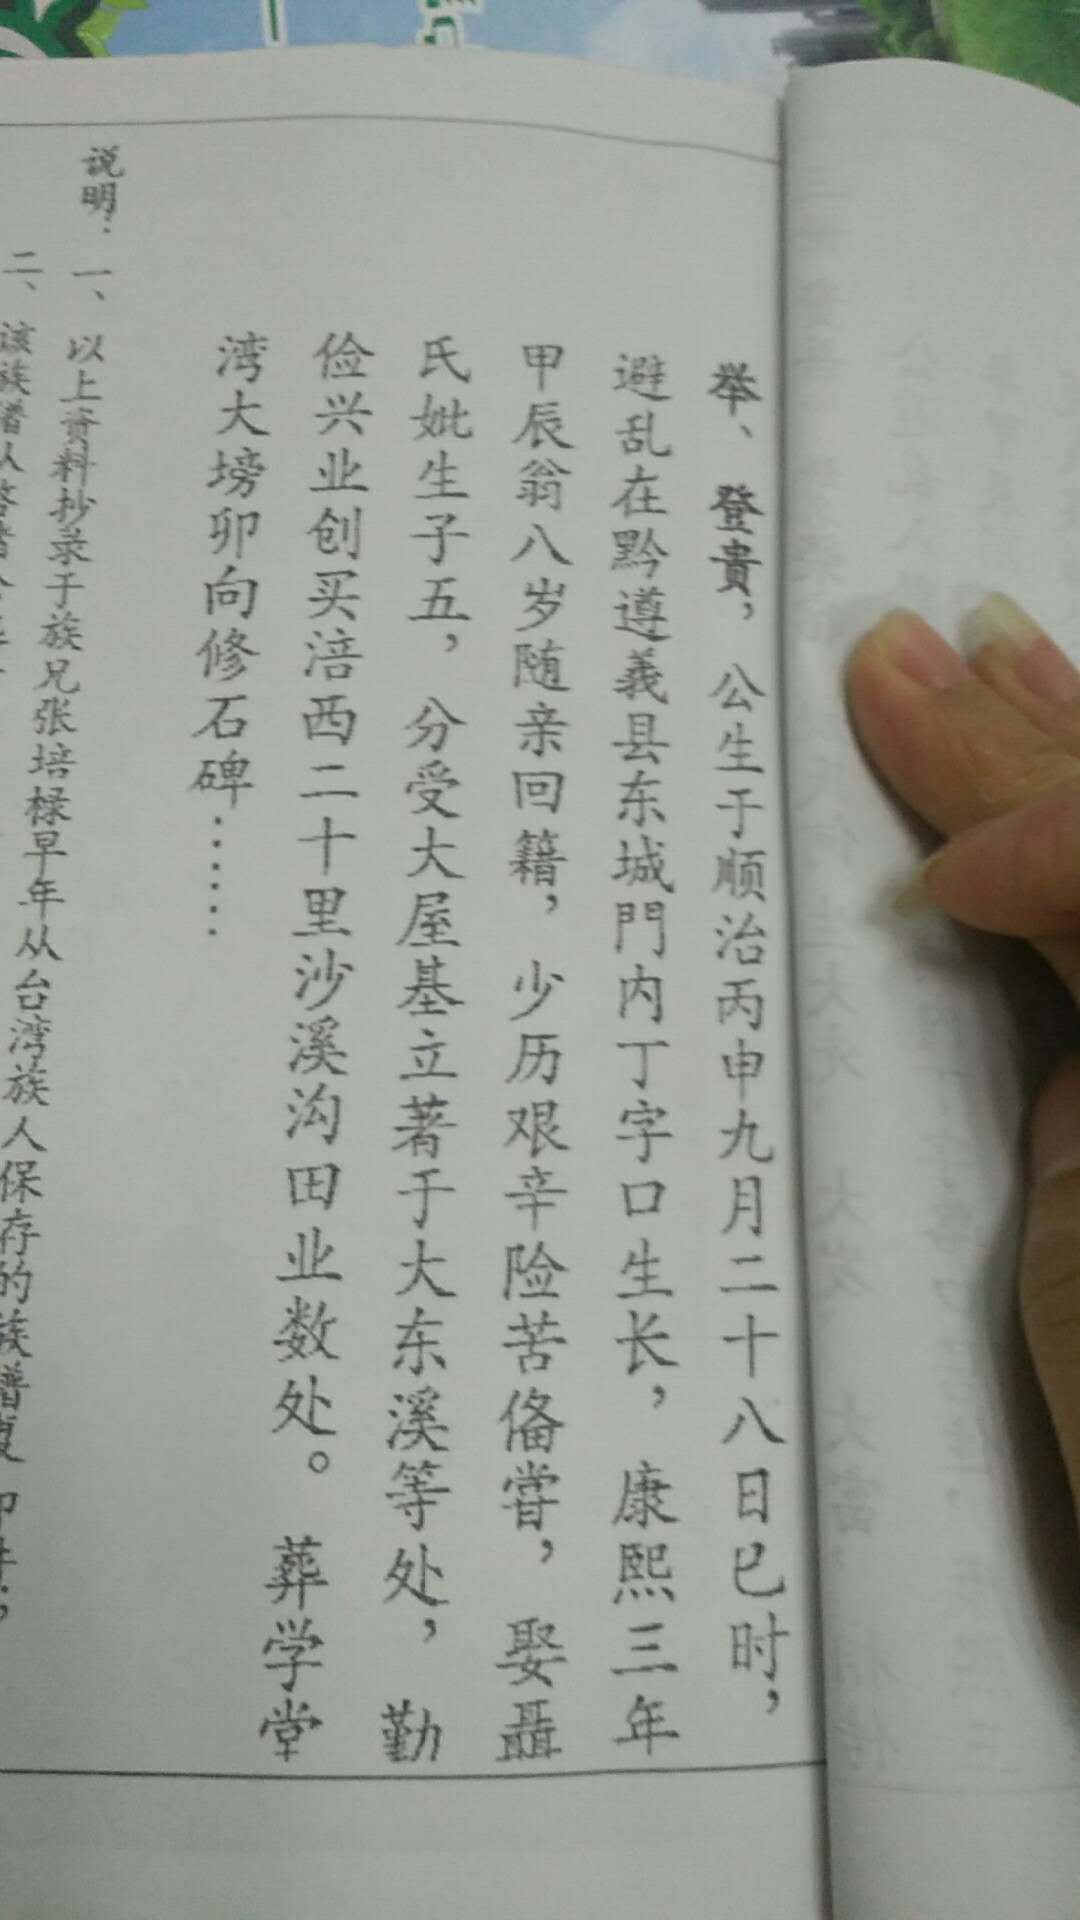 举、登貴，公生于顺治丙申九月二十八日巳时，
避乱在黔遵義县东城門内丁字口生长，康熙三年
甲辰翁八岁随亲回籍，少历艰辛险苦俻嘗，娶聶
氏妣生子五，分受大屋基立著于大东溪等处，勤
俭兴业创买涪西二十里沙溪沟田业数处。葬学堂
湾大塝卯向修石碑……
说明：一、以上资料抄录于族兄张培椂早年从台湾族人保存的族谱复印件；
二、该族谱从